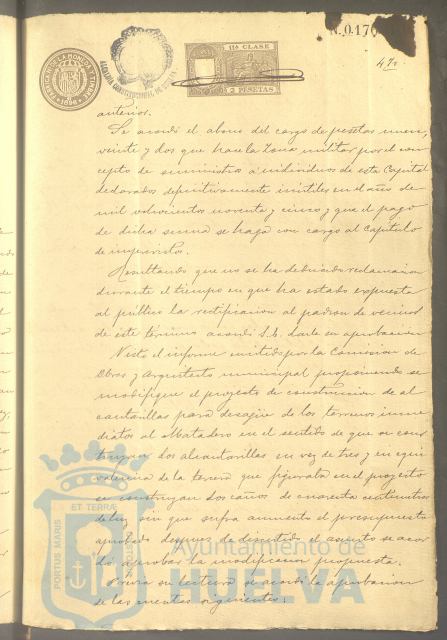 N.0.170
47v.
11ª CLASE
2 PESETAS
FABRICA NACIONAL DE LA MONEDA Y TIMBRE
1896
ALCALDIA CONSTITUCIONAL DE HUELVA
anterior.
Se acordó el abono del cargo de pesetas
veinte y dos que hace la Zona militar por el con
cepto de suministro á individuos de esta Capital
declarados definitivamente inútiles en el año de
mil ochocientos noventa y cinco y que el pago
de dicha suma se haga con cargo al capítulo
de imprevistos.
Resultando que no se ha deducido reclamacion
durante el tiempo en que ha estado expuesta
al público la rectificacion al padron de vecinos
de este término acordó S.E. darle su aprobacion
Visto el informe emitido por la Comision de
Obras y Arquitecto municipal proponiendo se
modifique el proyecto de construccion de al
cantarillas para desagüe de los terrenos inme
diatos al Matadero en el sentido de que se cons
truyan dos alcantarillas en vez de tres y en equi
valencia de la tercera que figuraba en el proyecto
se construyan dos caños de cuarenta centimetros
de luz sin que sufra aumento el presupuesto
aprobado despues de discutido el asunto se acor
dó aprobar la modificacion propuesta.
Previa su lectura se acordó la aprobacion
de las cuentas siguientes.
PORTUS MARIS ET TERRÆ CUSTODIA
Ayuntamiento de
HUELVA